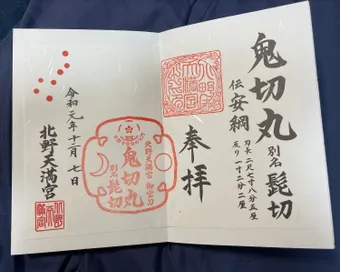 鬼切丸 別名 髭切
伝 安綱
刃長 二尺七寸八分五厘
反り 一寸二分二厘
奉拝
北野天満宮 御宝刀
鬼切丸
別名 髭切
令和元年十二月七日
北野天満宮